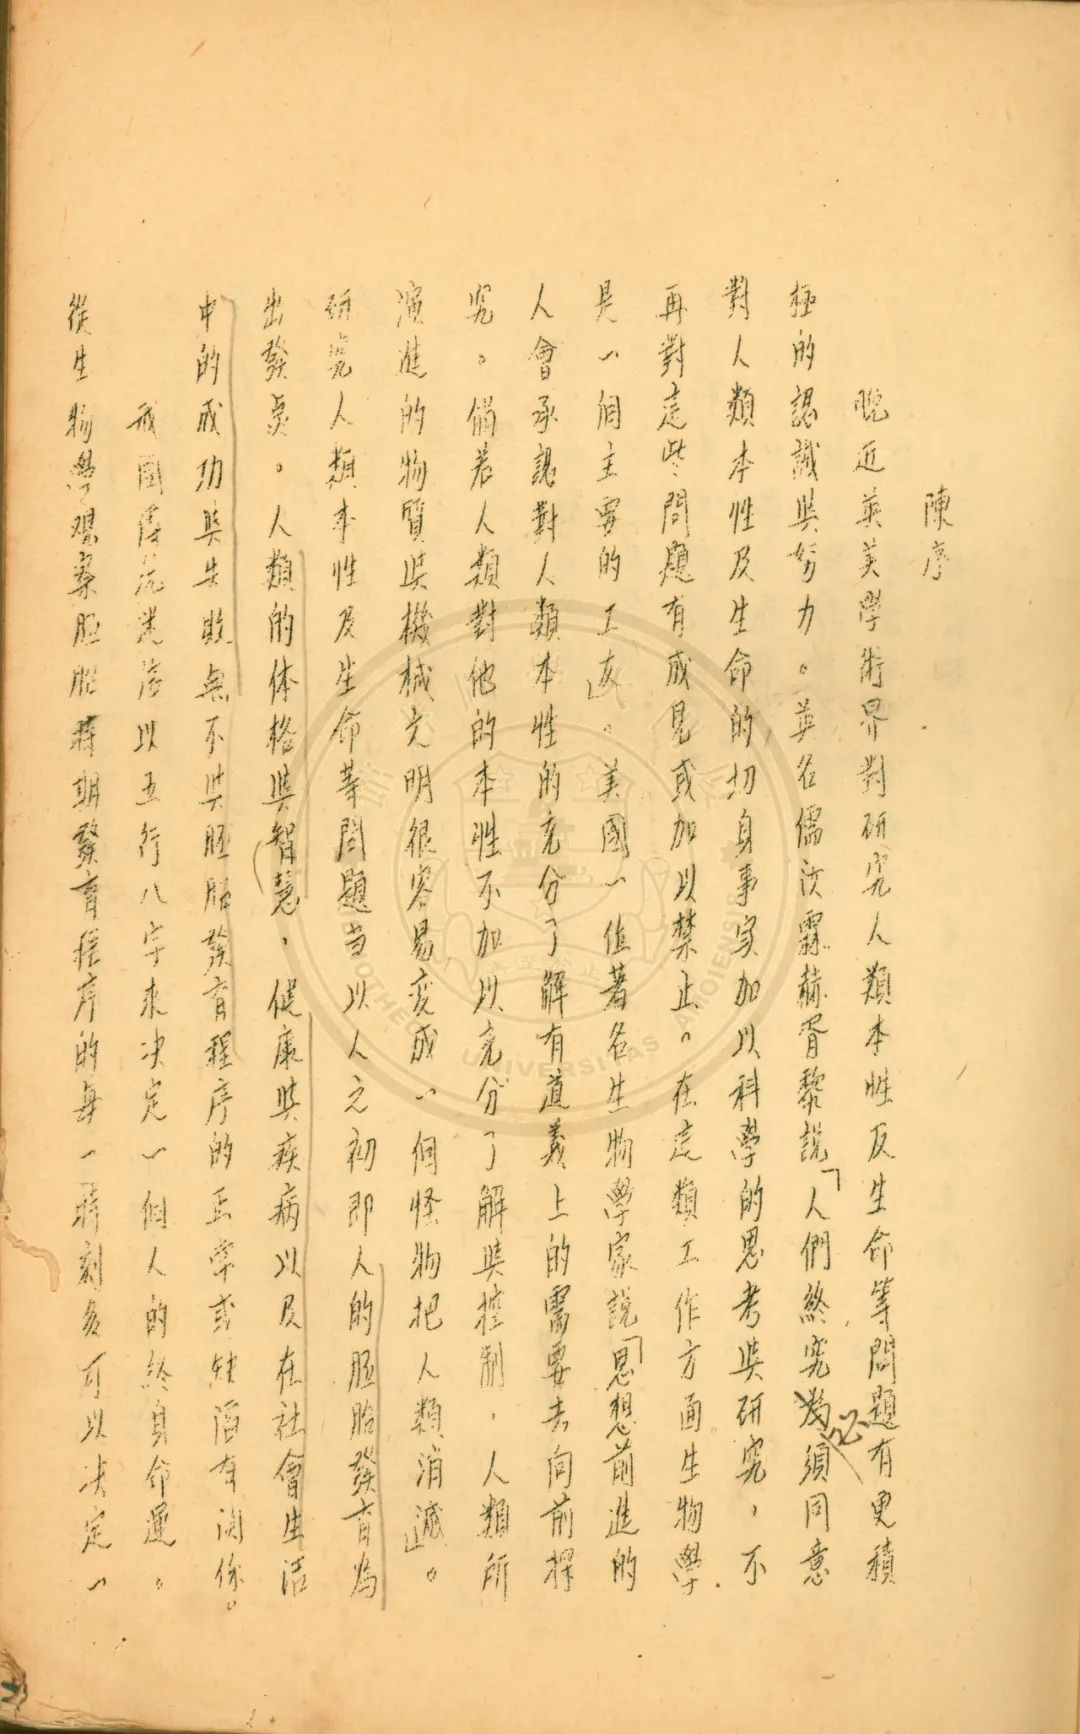 陳序
晚近英美學術界對研究人類本性及生命等問題有更積
極的認識與努力。英名儒汝霖赫胥黎說「人們終究必須同意
對人類本性及生命的切身事實加以科學的思考與研究，不
再對這些問題有成見或加以禁止。在這類工作方面生物學
是一個主要的工友」。美國一位著名生物學家說「思想前進的
人會承認對人類本性的充分了解有道義上的需要去向前探
究。倘若人類對他的本性不加以充分了解與控制，人類所
演進的物質與機械文明很容易变成一個怪物把人類消滅」。
研究人類本性及生命等問題当以人之初即人的胚胎發育為
出發奌。人類的体格與智慧，健康與疾病以及在社會生活
中的成功與失敗無不與胚胎發育程序的正常或缺陷有関係。
我國傳統迷信以五行八字來决定一個人的終身命運。
從生物學观察胚胎時期發育程序的每一時刻多可以决定一
UNIVERSITAS AMOIENSIS